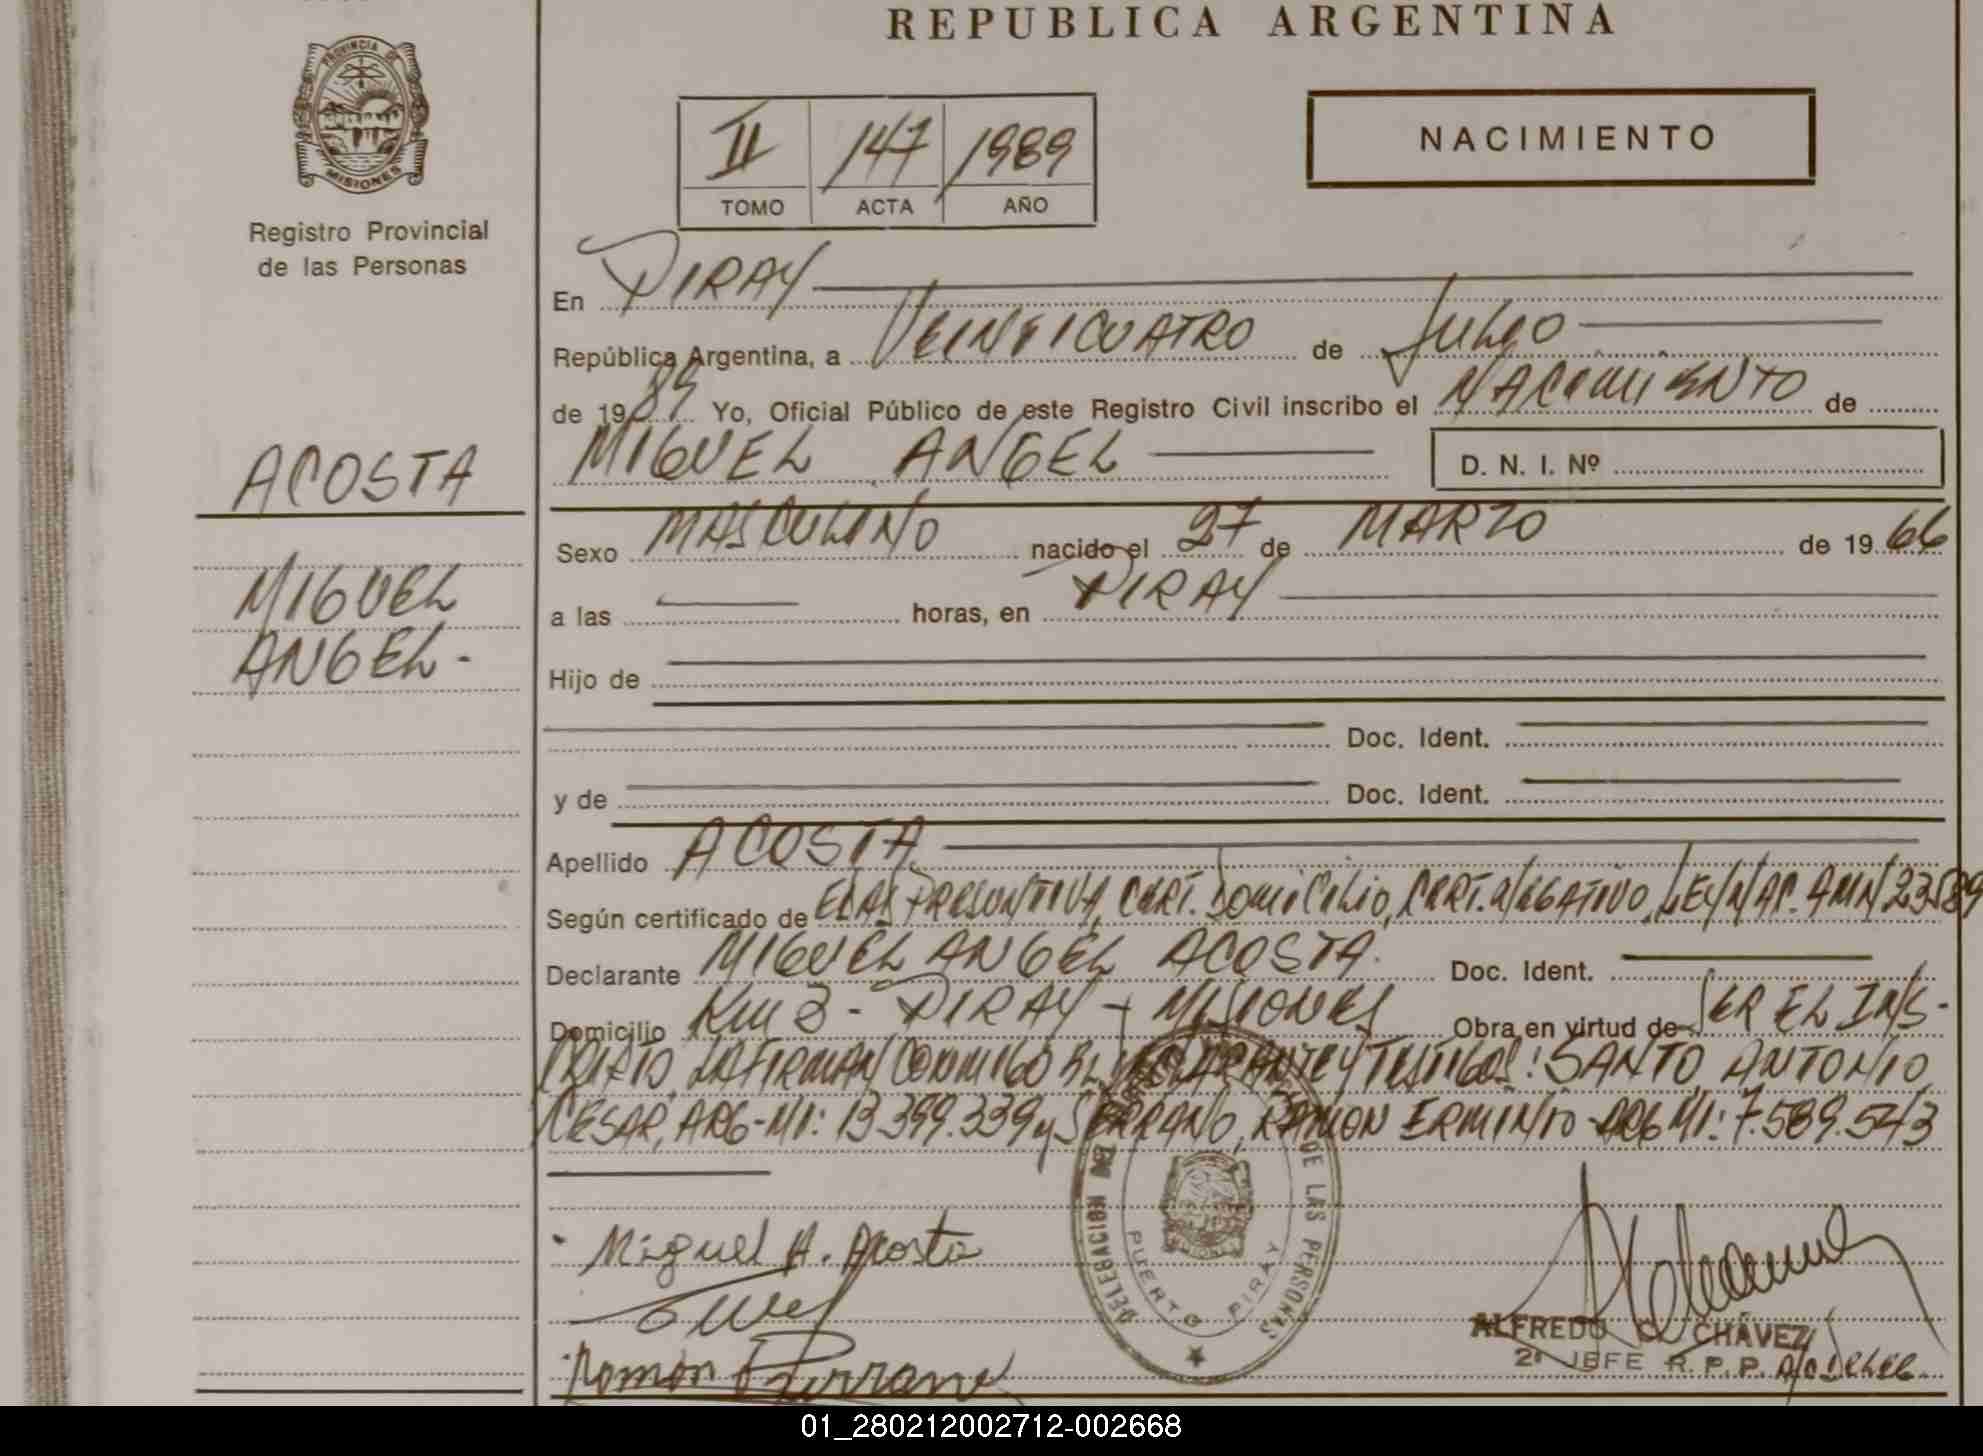 REPUBLICA ARGENTINA
PROVINCIA DE
MISIONES
Registro Provincial
de las Personas
II 147 1989
TOMO ACTA AÑO
NACIMIENTO
En PIRAY
República Argentina, a VEINTICUATRO de JULIO
de 1989 Yo, Oficial Público de este Registro Civil inscribo el NACIMIENTO de
MIGUEL ANGEL D. N. I. Nº
ACOSTA
MIGUEL
ANGEL.-
Sexo MASCULINO nacido el 27 de MARZO de 1966
a las horas, en PIRAY
Hijo de
Doc. Ident.
y de Doc. Ident.
Apellido ACOSTA
Según certificado de EDAD PRESUNTIVA, CERT. DOMICILIO, CERT. NEGATIVO, LEY NAC. AMN 23589
Declarante MIGUEL ANGEL ACOSTA. Doc. Ident.
Domicilio Km 3 - PIRAY - MISIONES Obra en virtud de SER EL INS-
CRIPTO, LA FIRMAN CONMIGO EL DECLARANTE Y TESTIGOS: SANTO, ANTONIO
CESAR, ARG-MI: 13.399.339 y SERRANO, RAMON ERMINIO-ARG MI: 7.589.543
Miguel A. Acosta
DELEGACION DE LAS PERSONAS
PUERTO PIRAY
ALFREDO C. CHÁVEZ
2º JEFE R. P. P.
01_280212002712-002668